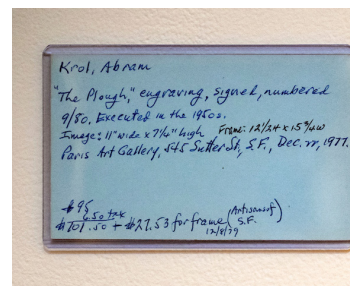 Krol, Abram
"The Plough," engraving, signed, numbered
9/50. Executed in the 1950s.
Image: 11" wide x 7 1/4" high Frame: 12 1/2 H x 15 3/4 W
Paris Art Gallery, 545 Sutter St, S.F., Dec. 1977.
$95
6.50 tax
$101.50 + $27.53 for frame (Artisans of S.F.)
12/8/79